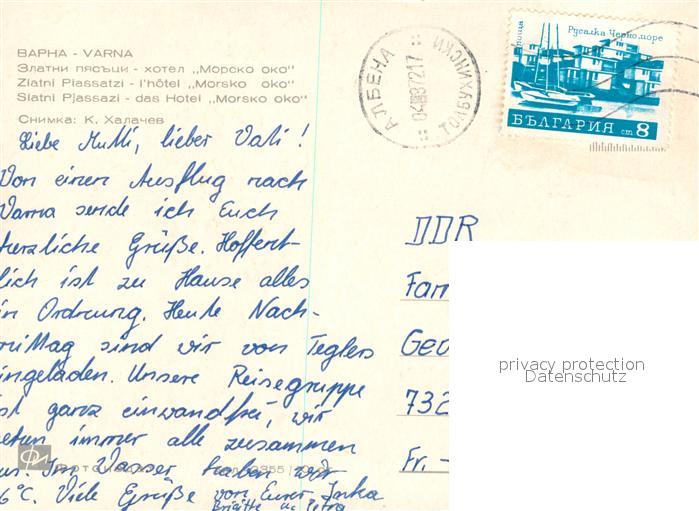 ВАРНА - VARNA
Златни пясъци - хотел „Морско око"
Zlatni Piassatzi - l'hôtel „Morsko oko"
Slatni Pjassazi - das Hotel „Morsko oko"
Снимка: К. Халачев
Liebe Mutti, lieber Vati!
Von einem Ausflug nach
Varna sende ich Euch
herzliche Grüße. Hoffent-
lich ist zu Hause alles
in Ordnung. Heute Nach-
mittag sind wir von Teglers
eingeladen. Unsere Reisegruppe
ist ganz einwandfrei, wir
immer alle zusammen
aus. Im Wasser haben wir
6°C. Viele Grüße von Eurer
Brigitte u. Petra
АЛБЕНА
ТОЛБУХИНСКИ
Русалка Черноморе
БЪЛГАРИЯ ст 8
DDR
Fam
Geo
732
Fr. -
privacy protection
Datenschutz